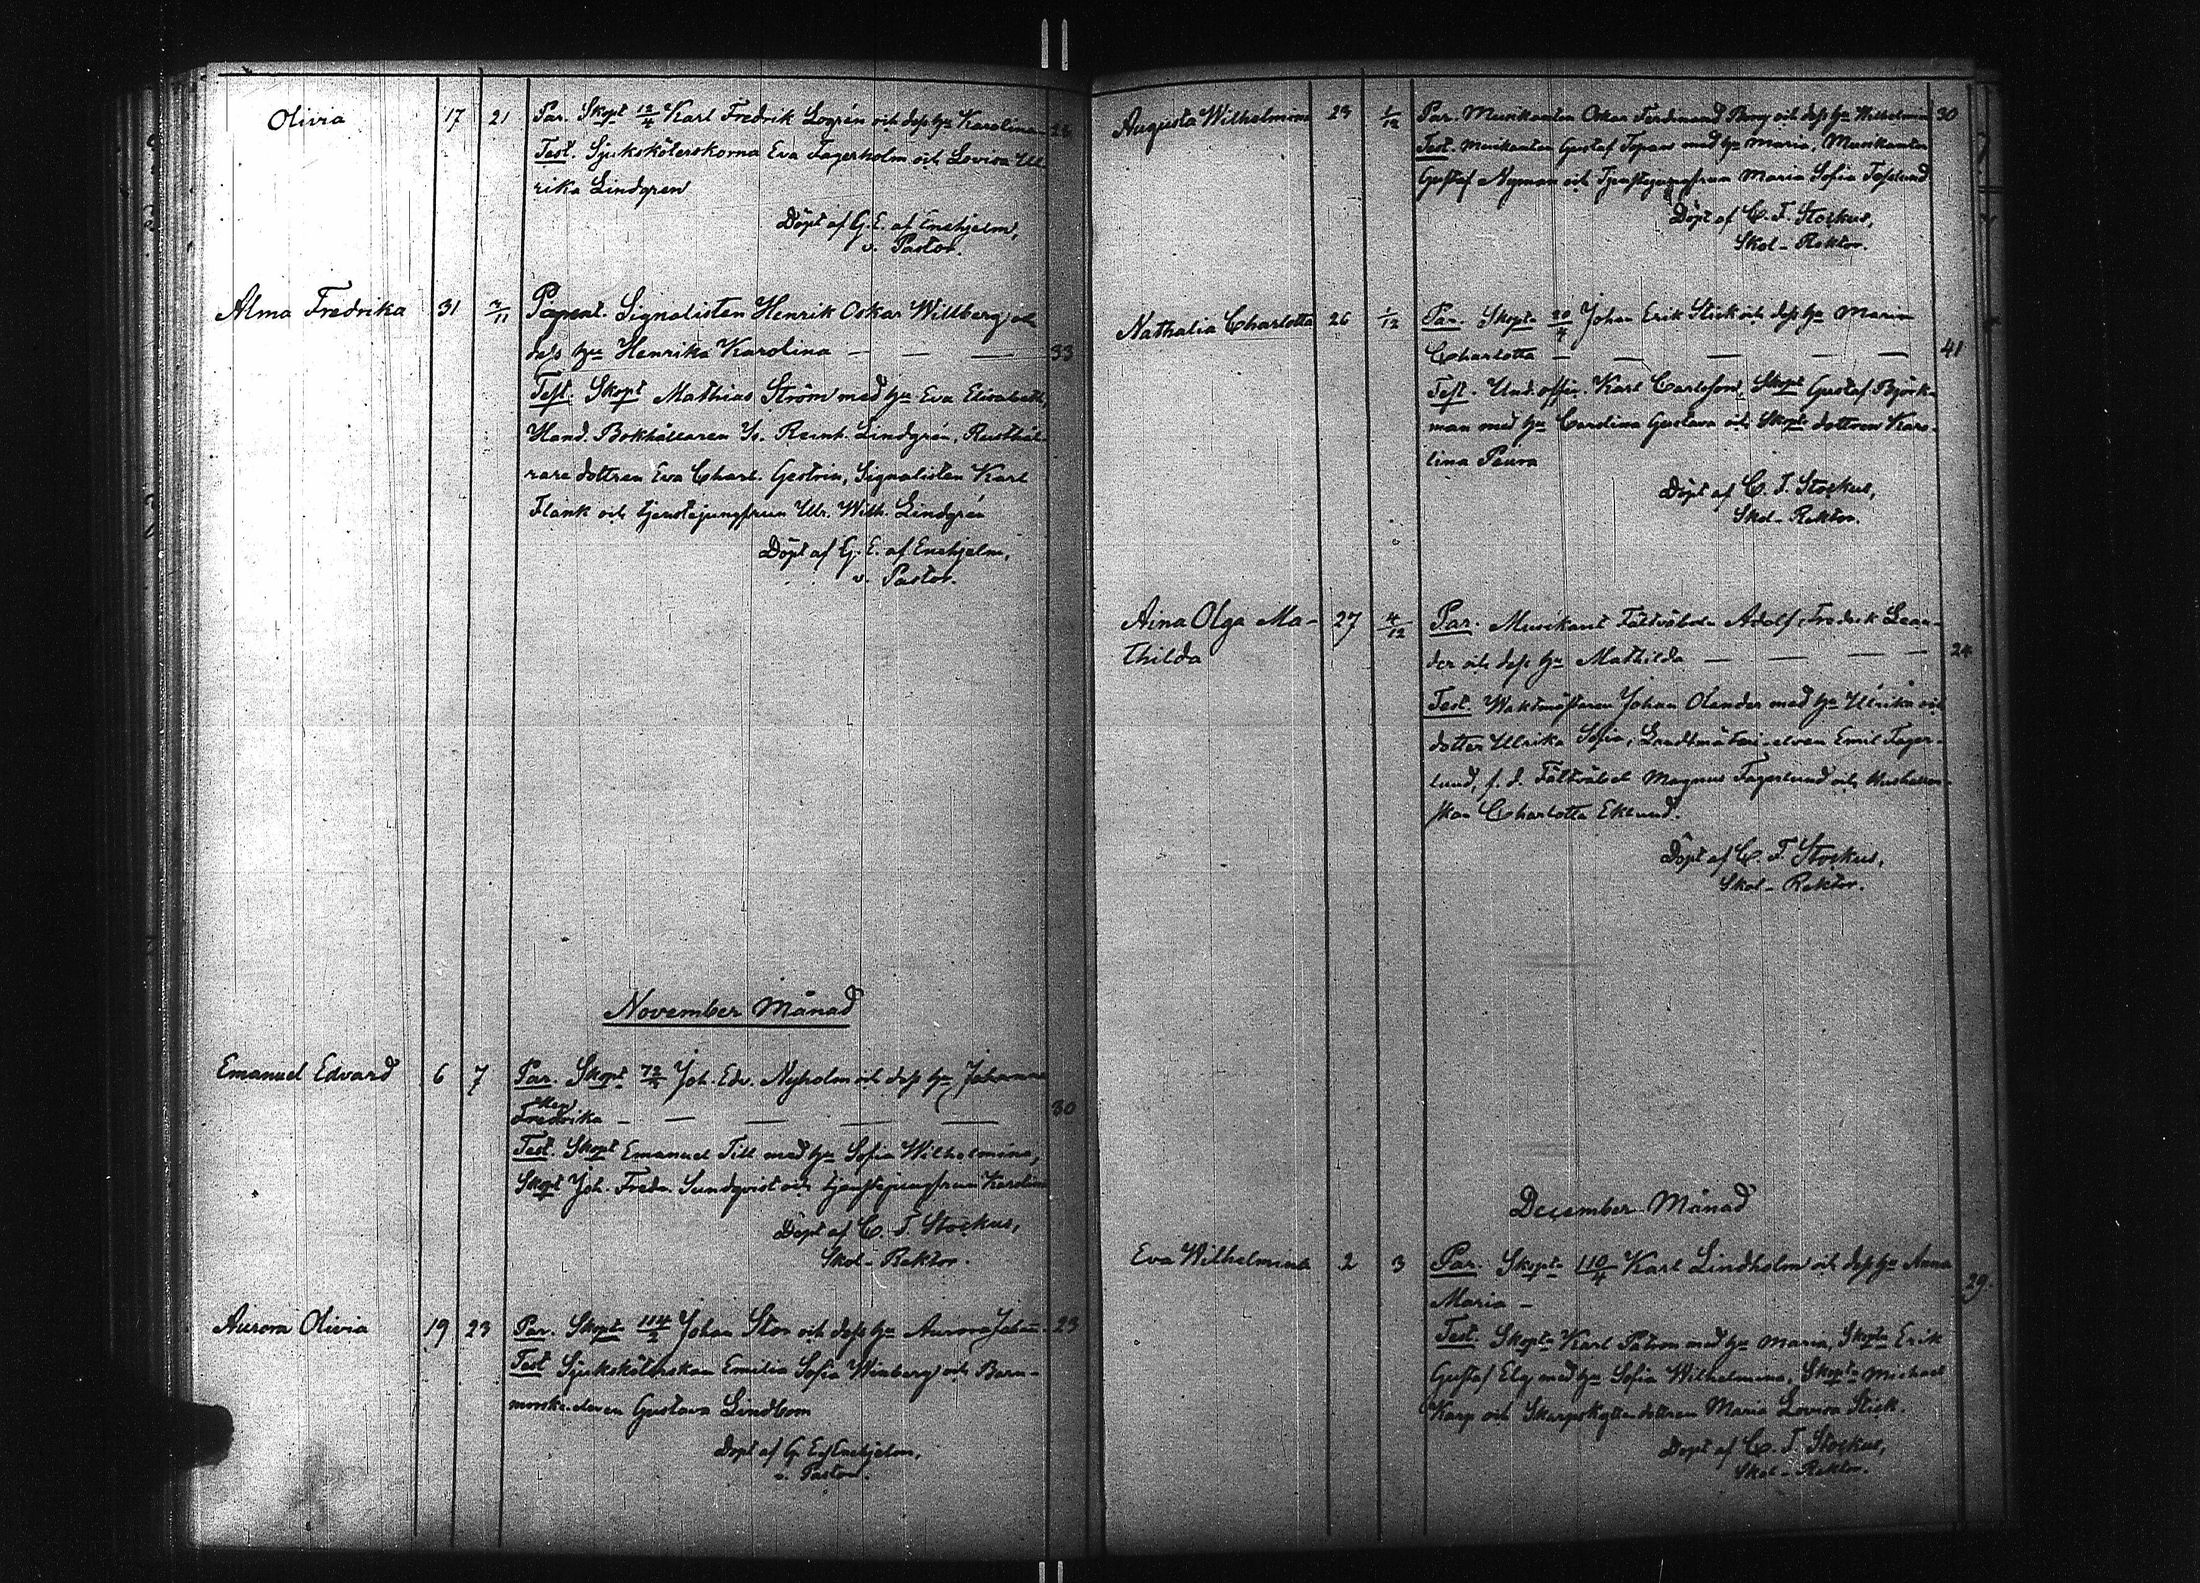 Olivia 17 21 Par. Skopt 12/4 Karl Fredrik Logrén och dess hu Karolina
Test. Sjuksköterskorna Eva Fagerholm och Lovisa Ul
rika Lindgren
Döpt af G. E. af Enehjelm,
v. Pastor.
Alma Fredrika 31 3/11 Signalisten Henrik Oskar Willberg och
dess hu Henrika Karolina — — — 33
Test. Skopt Mathias Ström med hu Eva Elisabeth,
Hand. Bokhållaren Reinh. Lindgrén, Rusthål-
rare dottren Eva Charl. Gestrin, Signalisten Karl
Flank och tjenstejungfrun Ulr. Wilh. Lindgrén
Döpt af G. E. af Enehjelm,
v. Pastor.
November Månad
Emanuel Edvard 6 7 Par. Skopt 72/4 Joh. Edv. Nyholm och dess hu Johanna
Fredrika — — — — — 30
Test. Skopt Emanuel Till med hu Sofia Wilhelmina,
Skopt Joh. Fredr. Sundqvist och tjenstejungfrun Karolina
Döpt af C. F. Stockus,
Skol-Rektor.
Aurora Olivia 19 23 Par. Skopt 114/2 Johan Stor och dess hu Aurora Joha 23
Test Sjuksköterskan Emilia Sofia Winberg och Barn-
morske eleven Gustava Lindbom
Döpt af G. E. af Enehjelm,
v. Pastor.
Augusta Wilhelmina 23 1/12 Par. Musikanten Oskar Ferdinand Berg och dess hu Wilhelmina 30
Test. Musikanten Gustaf Topans med hu Maria, Musikanten
Gustaf Nyman och Tjenstejungfrun Maria Sofia
Döpt af C. F. Stockus,
Skol-Rektor.
Nathalia Charlotta 26 1/12 Par. Skopt 20/4 Johan Erik Stick och dess hu Maria
Charlotta — — — — — 41
Test. Und. offic. Karl Carlsson, Skopt Gustaf Björk-
man med hu Carolina Gustava och Skopts dottren Karo-
lina Paura
Döpt af C. F. Stockus,
Skol-Rektor.
Aina Olga Ma- 27 4/12 Par. Musikant Fältväbeln Adolf Fredrik Lean-
thilda der och dess hu Mathilda — — — — 24
Test. Waktmästaren Johan Olander med hu Ulrika och
dotter Ulrika Sofia, Landtmäteri-eleven Emil Fager-
lund, f. d. Fältväbel Magnus Fagerlund och Hushåller-
skan Charlotta Eklund.
Döpt af C. F. Stockus,
Skol-Rektor.
December Månad
Eva Wilhelmina 2 3 Par. Skopt 110/4 Karl Lindholm och dess hu Anna
Maria — 29.
Test. Skopt Karl Patron med hu Maria, Skopt Erik
Gustaf Elg med hu Sofia Wilhelmina, Skopt Michael
Karp och Skarpskyttendottren Maria Lovisa Stick.
Döpt af C. F. Stockus,
Skol-Rektor.